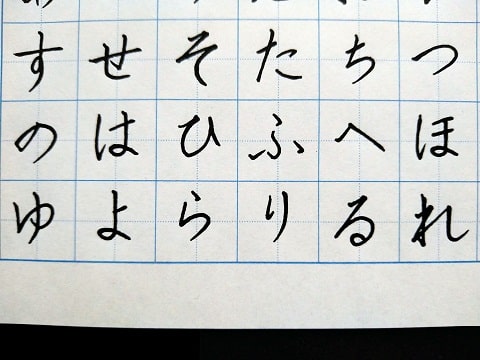 すせそたちつ
のはひふへほ
ゆよらりるれ